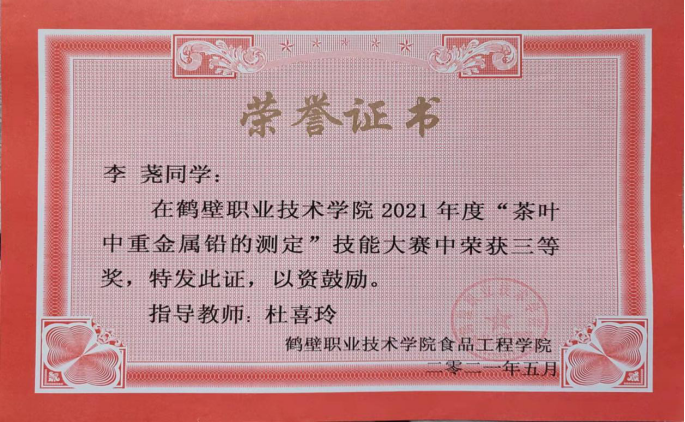 荣誉证书
李 荛同学：
在鹤壁职业技术学院 2021 年度“茶叶
中重金属铅的测定”技能大赛中荣获三等
奖，特发此证，以资鼓励。
指导教师：杜喜玲
鹤壁职业技术学院食品工程学院
二零二一年五月